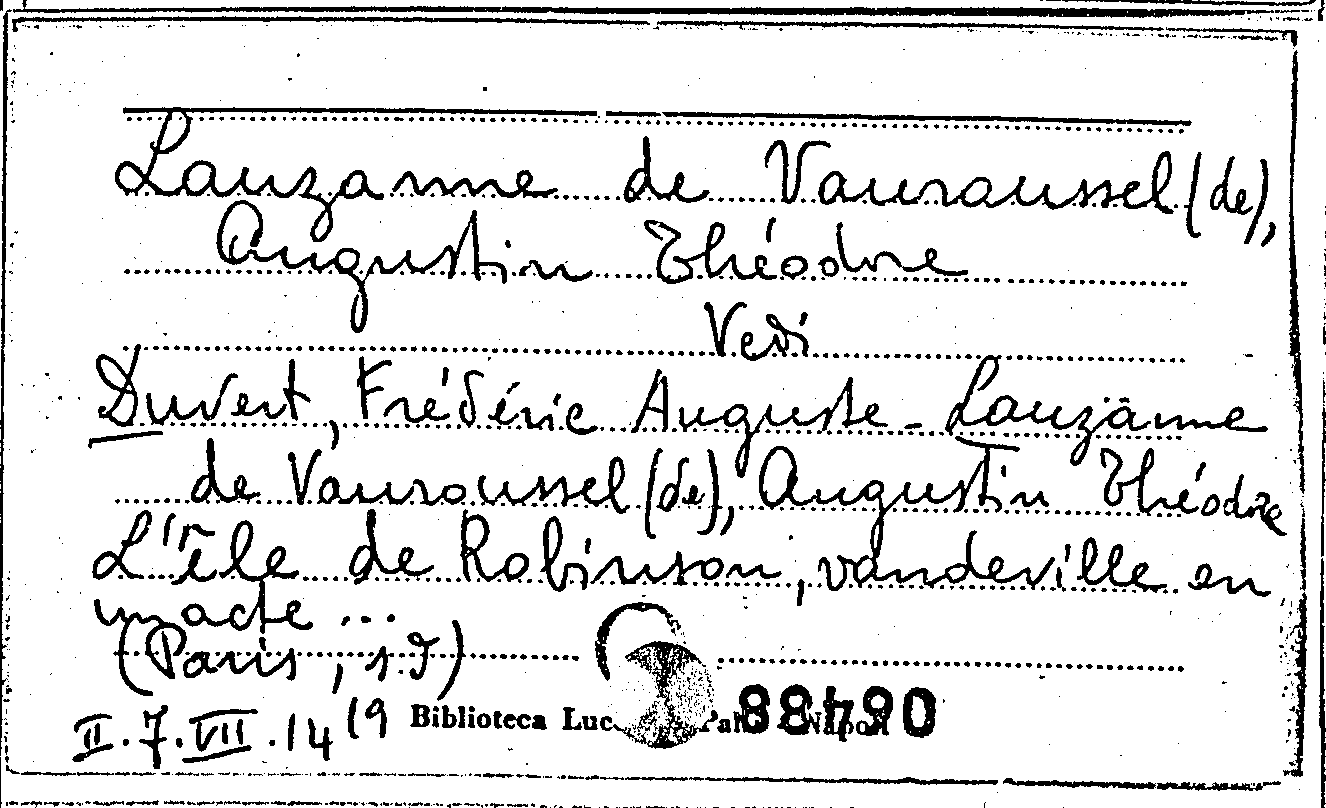 Lauzanne de Vauroussel (de),
Augustin Théodore
Vedi
Duvert, Frédéric Auguste - Lauzanne
de Vauroussel (de), Augustin Théodore
L'île de Robinson, vaudeville en
un acte ...
(Paris, s.d)
II.7.VII.14 (9
Biblioteca